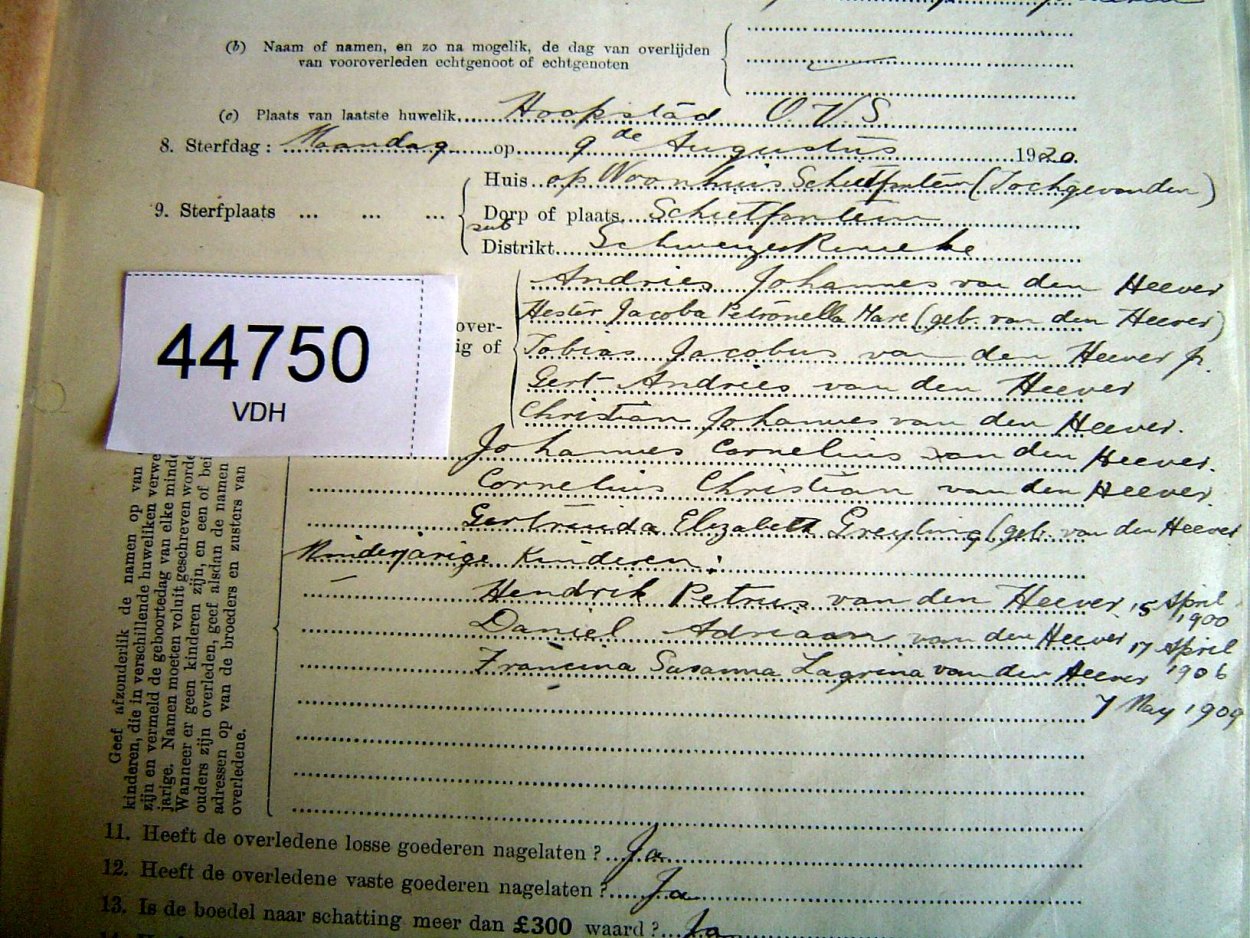 (b) Naam of namen, en zo na mogelik, de dag van overlijden
van vooroverleden echtgenoot of echtgenoten
(c) Plaats van laatste huwelik Hoopstad O.V.S.
8. Sterfdag: Maandag op 9de Augustus 1920.
9. Sterfplaats ... ... ... Huis op Woonhuis Schietfontein (
Dorp of plaats Schietfontein
sub
Distrikt Schweizer Reneke
Andries Johannes van den Heever
Hester Jacoba Petronella Mare (geb. van den Heever)
over-
ig of
Tobias Jacobus van den Heever jr.
Gert Andries van den Heever
Christian Johannes van den Heever.
44750
VDH
Johannes Cornelius van den Heever.
Cornelius Christian van den Heever.
Gertruida Elizabeth Greyling (geb. van den Heever
Minderjarige Kinderen:
Hendrik Petrus van den Heever, 15 April 1900
Daniel Adriaan van den Heever 17 April 1906
Francina Susanna Lagrina van den Heever
7 May 1909
Geef afzonderlik de namen op van
kinderen, die in verschillende huweliken verwe
zijn en vermeld de geboortedag van elke minde
jarige. Namen moeten voluit geschreven worde
Wanneer er geen kinderen zijn, en een of bei
ouders zijn overleden, geef alsdan de namen
adressen op van de broeders en zusters van
overledene.
11. Heeft de overledene losse goederen nagelaten? Ja
12. Heeft de overledene vaste goederen nagelaten? Ja
13. Is de boedel naar schatting meer dan £300 waard? Ja